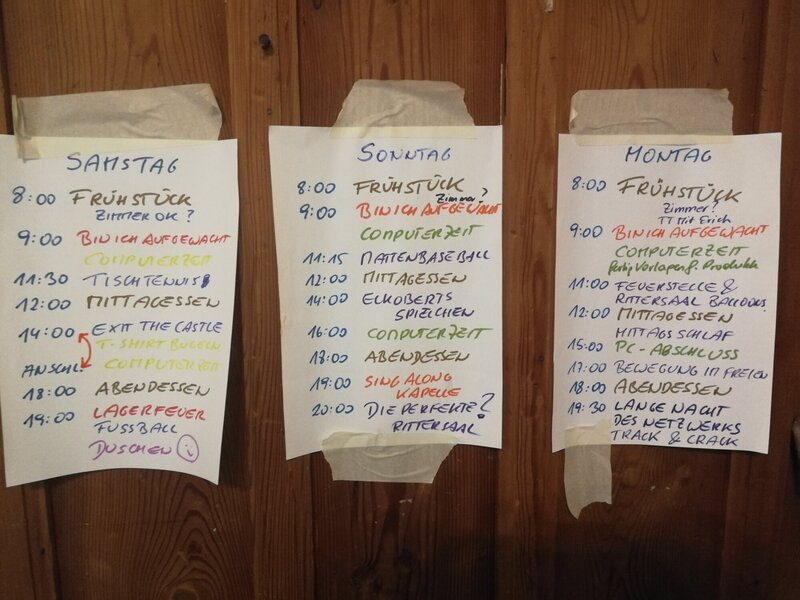 SAMSTAG
8:00 FRÜHSTÜCK
ZIMMER OK?
9:00 BIN ICH AUFGEWACHT
COMPUTERZEIT
11:30 TISCHTENNIS
12:00 MITTAGESSEN
14:00 EXIT THE CASTLE
T-SHIRT BÜGELN
ANSCHL. COMPUTERZEIT
18:00 ABENDESSEN
19:00 LAGERFEUER
FUSSBALL
DUSCHEN
SONNTAG
8:00 FRÜHSTÜCK
Zimmer?
9:00 BIN ICH AUFGEWACHT
COMPUTERZEIT
11:15 MATTENBASEBALL
12:00 MITTAGESSEN
14:00 ECKOBERTS
SPIELCHEN
16:00 COMPUTERZEIT
18:00 ABENDESSEN
19:00 SING ALONG
KAPELLE
20:00 DIE PERFEKTE?
RITTERSAAL
MONTAG
8:00 FRÜHSTÜCK
Zimmer!
TT Mit Erich
9:00 BIN ICH AUFGEWACHT
COMPUTERZEIT
Vorlagen f. Produkte
11:00 FEUERSTELLE &
RITTERSAAL
12:00 MITTAGESSEN
MITTAGSSCHLAF
15:00 PC-ABSCHLUSS
17:00 BEWEGUNG IM FREIEN
18:00 ABENDESSEN
19:30 LANGE NACHT
DES NETZWERKS
TRACK & CRACK